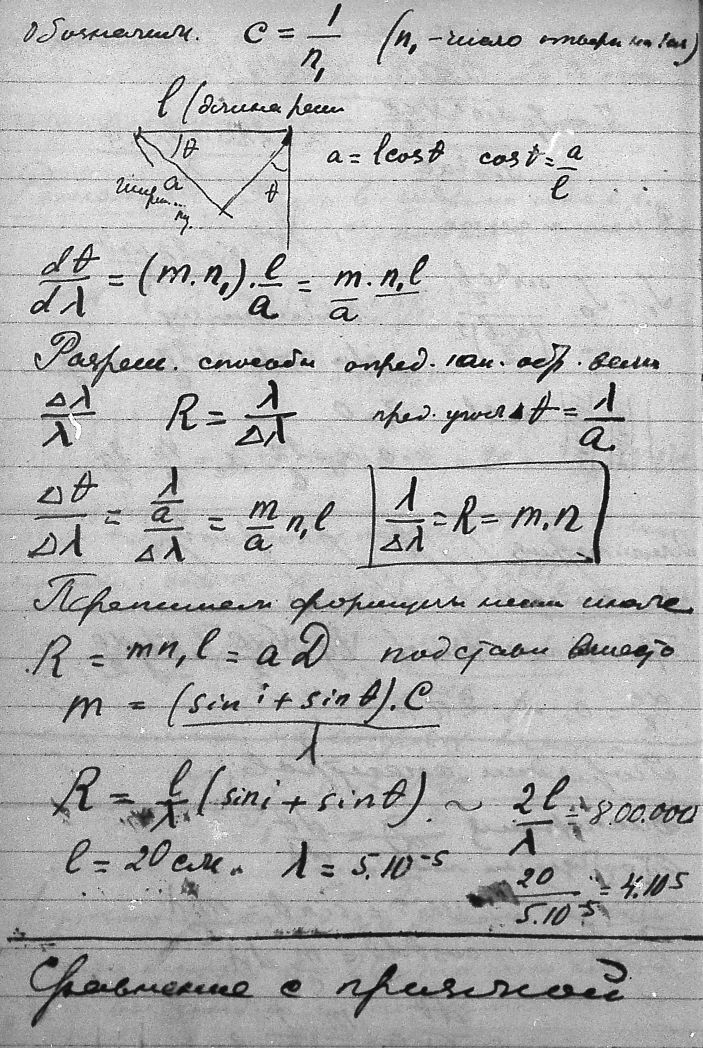 Обозначим. c = 1/n₁ (n₁ - число на 1 см)
l (длина реш
θ a = l cos θ cos θ = a/l
a θ
dθ/dλ = (m·n₁)·l/a = m/a · n₁l
Разреш. способн опред. как. обр. вели
Δλ/λ R = λ/Δλ пред. угол Δθ = λ/a
Δθ/Δλ = (λ/a)/Δλ = m/a n₁l λ/Δλ = R = m·n
Перепишем формулы иначе
R = mn₁l = aD подстави вместо
m = (sin i + sin θ)·C/λ
R = l/λ (sin i + sin θ) ~ 2l/λ = 800.000
l = 20 см. λ = 5.10⁻⁵ 20/5.10⁻⁵ = 4.10⁵
Сравнение с призмой